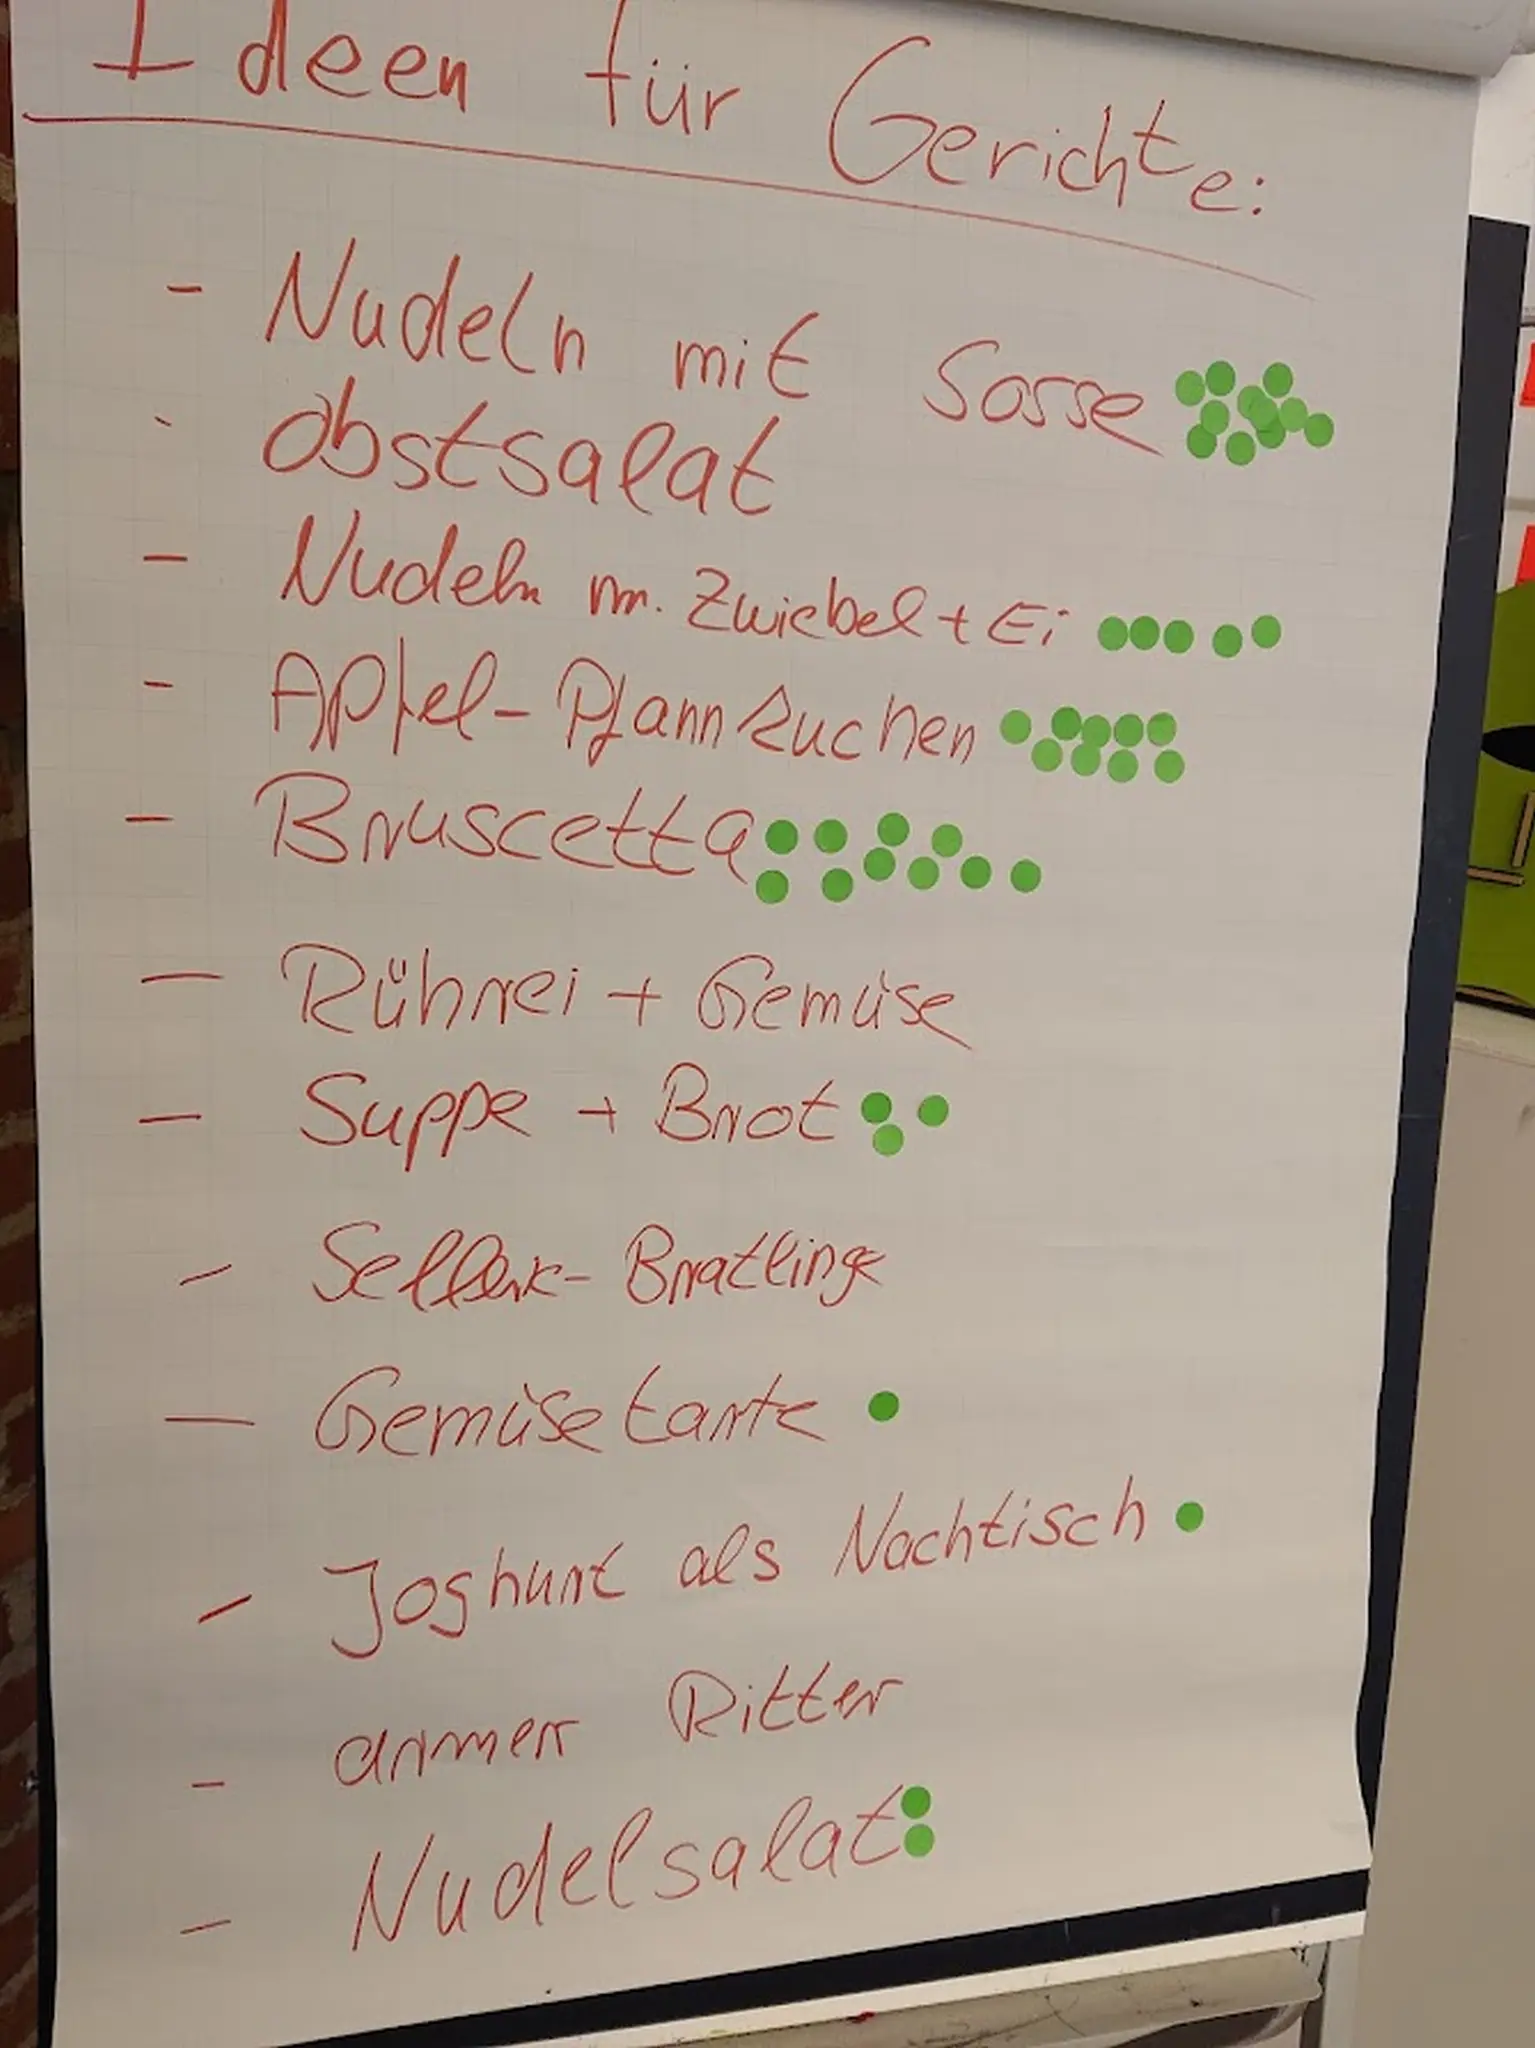 Ideen für Gerichte:
- Nudeln mit Sosse
- Obstsalat
- Nudeln m. Zwiebel + Ei
- Apfel-Pfannkuchen
- Bruscetta
- Rührei + Gemüse
- Suppe + Brot
- Sellerie-Bratlinge
- Gemüsetarte
- Joghurt als Nachtisch
- armer Ritter
- Nudelsalat